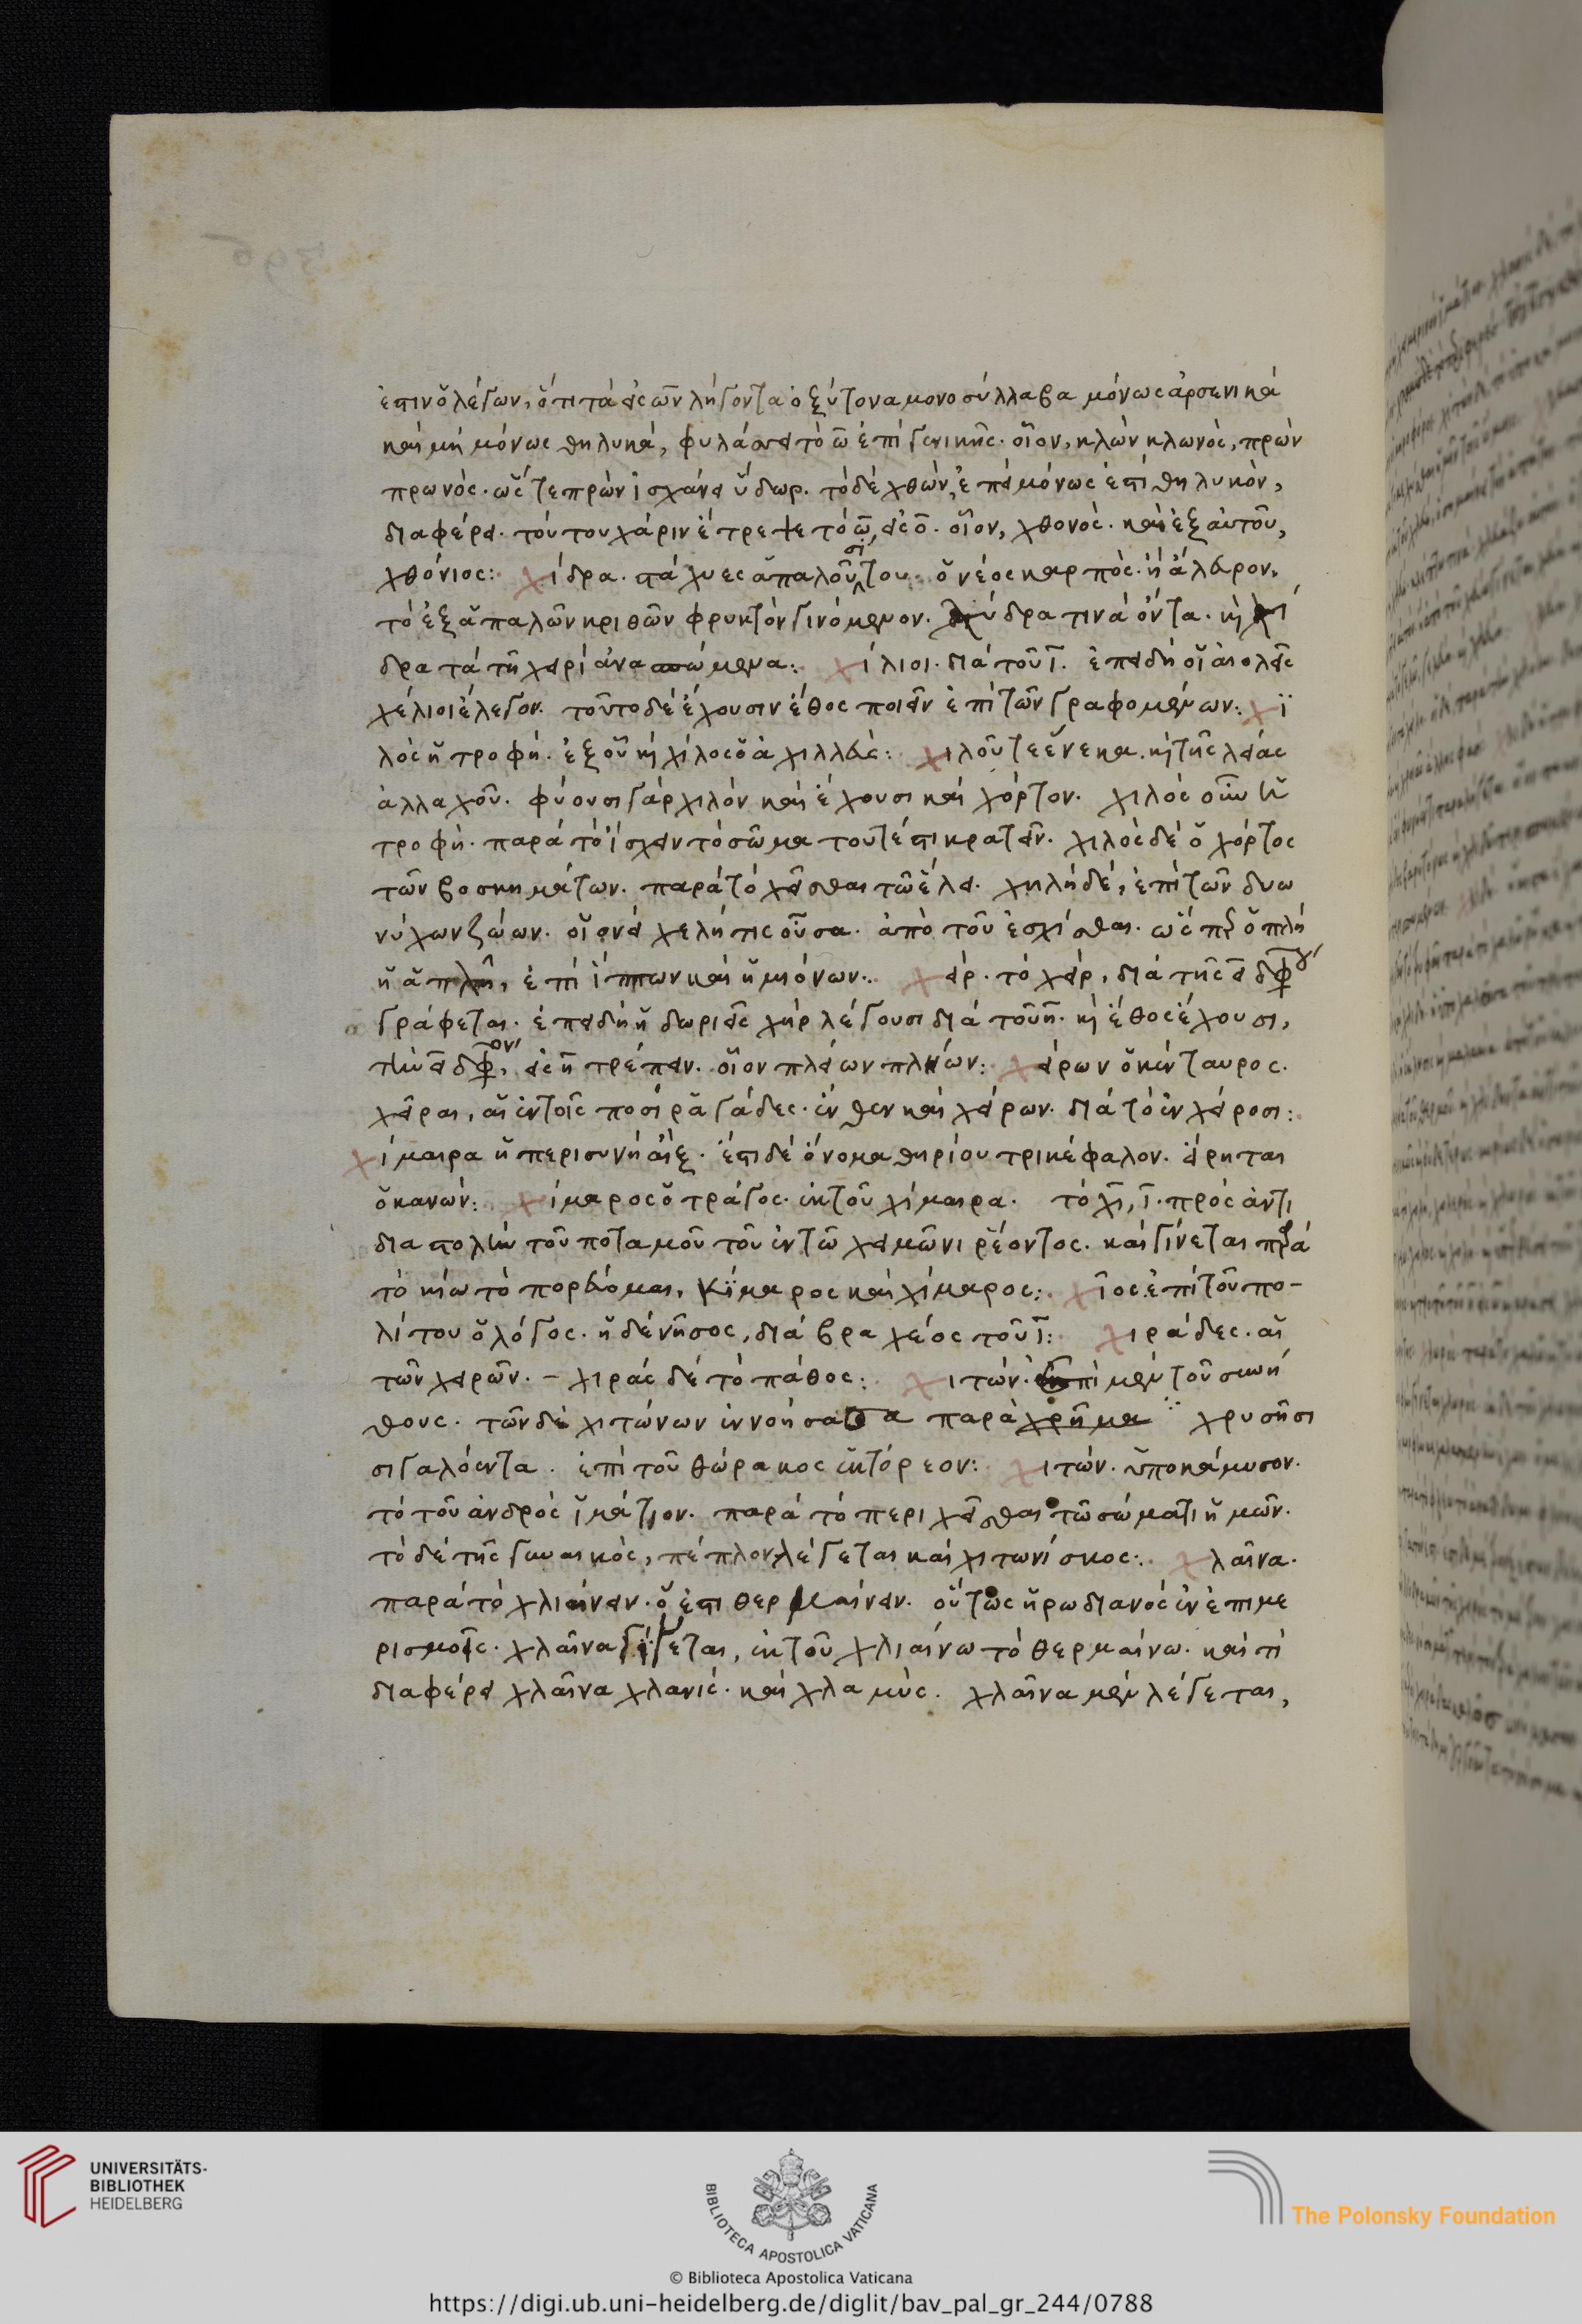 ἐστιν ὁ λέγων, ὅτι τὰ εἰς ων λήγοντα ὀξύτονα μονοσύλλαβα μόνως ἀρσενικά
καὶ μὴ μόνως θηλυκά, φυλάσσει τὸ ω ἐπὶ γενικῆς. οἷον, κλὼν κλωνός, πρὼν
πρωνός. ὥς τε πρὼν ἰσχάνει ὕδωρ. τὸ δὲ χθών, ἐπεὶ μόνως ἐστὶ θηλυκὸν,
διαφέρει. τούτου χάριν ἔτρεψε τὸ ω, εἰς ο. οἷον, χθονός. καὶ ἐξ αὐτοῦ,
χθόνιος: χίδρα. στάχυες ἁπαλοῦ σίτου. ὁ νέος καρπός. ἢ ἄλευρον,
τὸ ἐξ ἁπαλῶν κριθῶν φρυκτὸν γινόμενον. χύδρα τινὰ ὄντα. κὴ χί
δρα τὰ τῇ χειρὶ ἀνασπώμενα: χίλιοι. διὰ τοῦ ι. ἐπειδὴ οἱ αἰολεῖς
χέλιοι ἔλεγον. τοῦτο δὲ ἔχουσιν ἔθος ποιεῖν ἐπὶ τῶν γραφομένων: χϊ
λὸς ἡ τροφή. ἐξ οὗ κὴ χίλος ὁ ἀχιλλεύς: χιλοῦ τε εἵνεκα. κὴ τῆς λείας
ἀλλαχοῦ. φύουσι γὰρ χιλὸν καὶ ἔχουσι καὶ χόρτον. χιλὸς οὖν ἡ
τροφή. παρὰ τὸ ἴσχειν τὸ σῶμα τουτέστι κρατεῖν. χιλὸς δὲ ὁ χόρτος
τῶν βοσκημάτων. παρὰ τὸ χεῖσθαι τῶ ἕλει. χηλὴ δέ, ἐπὶ τῶν δυω
νύχων ζώων. οἱονεὶ χελή τις οὖσα. ἀπὸ τοῦ ἐσχίσθαι. ὥσπερ ὁπλὴ
ἡ ἁπλῆ, ἐπὶ ἵππων καὶ ἡμιόνων: χείρ. τὸ χείρ, διὰ τῆς ει διφθόγγου
γράφεται. ἐπειδὴ ἡ δωριεῖς χὴρ λέγουσι διὰ τοῦ η. κὴ ἔθος ἔχουσι,
τὴν ει δίφθογγον, εἰς η τρέπειν. οἷον πλείων πλήων: χείρων ὁ κένταυρος.
χεῖραι, αἱ ἐν τοῖς ποσὶ ῥαγάδες. ἔνθεν καὶ χείρων. διὰ τὸ ἐν χείροσι:
χίμαιρα ἡ περισυνὴ αἴξ. ἔστι δὲ ὄνομα θηρίου τρικέφαλον. εἴρηται
ὁ κανών: χίμαρος ὁ τράγος. ἐκ τοῦ χίμαιρα. τὸ χι, ι. πρὸς ἀντι
διαστολὴν τοῦ ποταμοῦ τοῦ ἐν τῶ χειμῶνι ῥέοντος. καὶ γίνεται παρὰ
τὸ κίω τὸ πορεύομαι, κίμαρος καὶ χίμαρος: χῖος ἐπὶ τοῦ πο-
λίτου ὁ λόγος. ἡ δὲ νῆσος, διὰ βραχέος τοῦ ι: χιράδες. αἱ
τῶν χειρῶν. – χιρὰς δὲ τὸ πάθος: χιτών. ἐπὶ μὲν τοῦ συνή
θους. τῶν δὲ χιτώνων ἐννοήσασα παρὰ χρῆμα χρυσῆσι
σιγαλόεντα. ἐπὶ τοῦ θώρακος ἑκτόρεον: χιτών. ὑποκάμυσον.
τὸ τοῦ ἀνδρὸς ἱμάτιον. παρὰ τὸ περιχεῖσθαι τῶ σώματι ἡμῶν.
τὸ δὲ τῆς γυναικός, πέπλον λέγεται καὶ χιτωνίσκος: χλαῖνα.
παρὰ τὸ χλιαίνειν. ὅ ἐστι θερμαίνειν. οὕτως ἡρωδιανὸς ἐν ἐπιμε
ρισμοῖς. χλαῖνα γίνεται, ἐκ τοῦ χλιαίνω τὸ θερμαίνω. καὶ τί
διαφέρει χλαῖνα χλανίς. καὶ χλαμύς. χλαῖνα μὲν λέγεται,
UNIVERSITÄTS-
BIBLIOTHEK
HEIDELBERG
BIBLIOTECA APOSTOLICA VATICANA
The Polonsky Foundation
© Biblioteca Apostolica Vaticana
https://digi.ub.uni-heidelberg.de/diglit/bav_pal_gr_244/0788